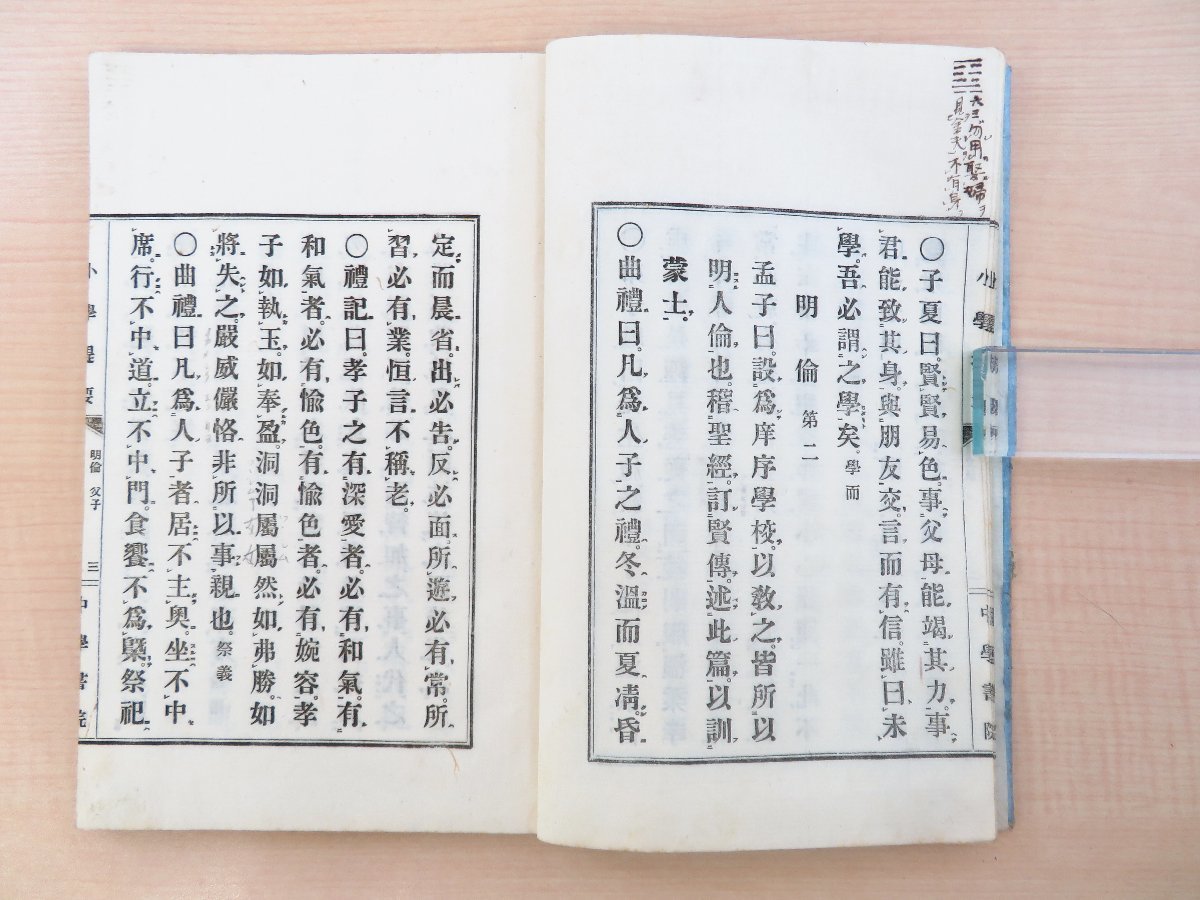 六三勿用娶婦ヲ
見金夫不有身
○子夏曰。賢賢易色。事父母能竭其力。事
君能致其身。與朋友交。言而有信。雖曰未
學。吾必謂之學矣。學而
明倫 第二
孟子曰。設爲庠序學校。以敎之。皆所以
明人倫也。稽聖經。訂賢傳。述此篇。以訓
蒙士。
○曲禮曰。凡爲人子之禮。冬溫而夏凊。昏
小學
中學書院
定而晨省。出必告。反必面。所遊必有常。所
習必有業。恒言不稱老。
○禮記曰。孝子之有深愛者。必有和氣。有
和氣者。必有愉色。有愉色者。必有婉容。孝
子如執玉。如奉盈。洞洞屬屬然如弗勝。如
將失之。嚴威儼恪。非所以事親也。祭義
○曲禮曰。凡爲人子者。居不主奧。坐不中
席。行不中道。立不中門。食饗不爲槩。祭祀
小學提要 明倫 父子 三 中學書院